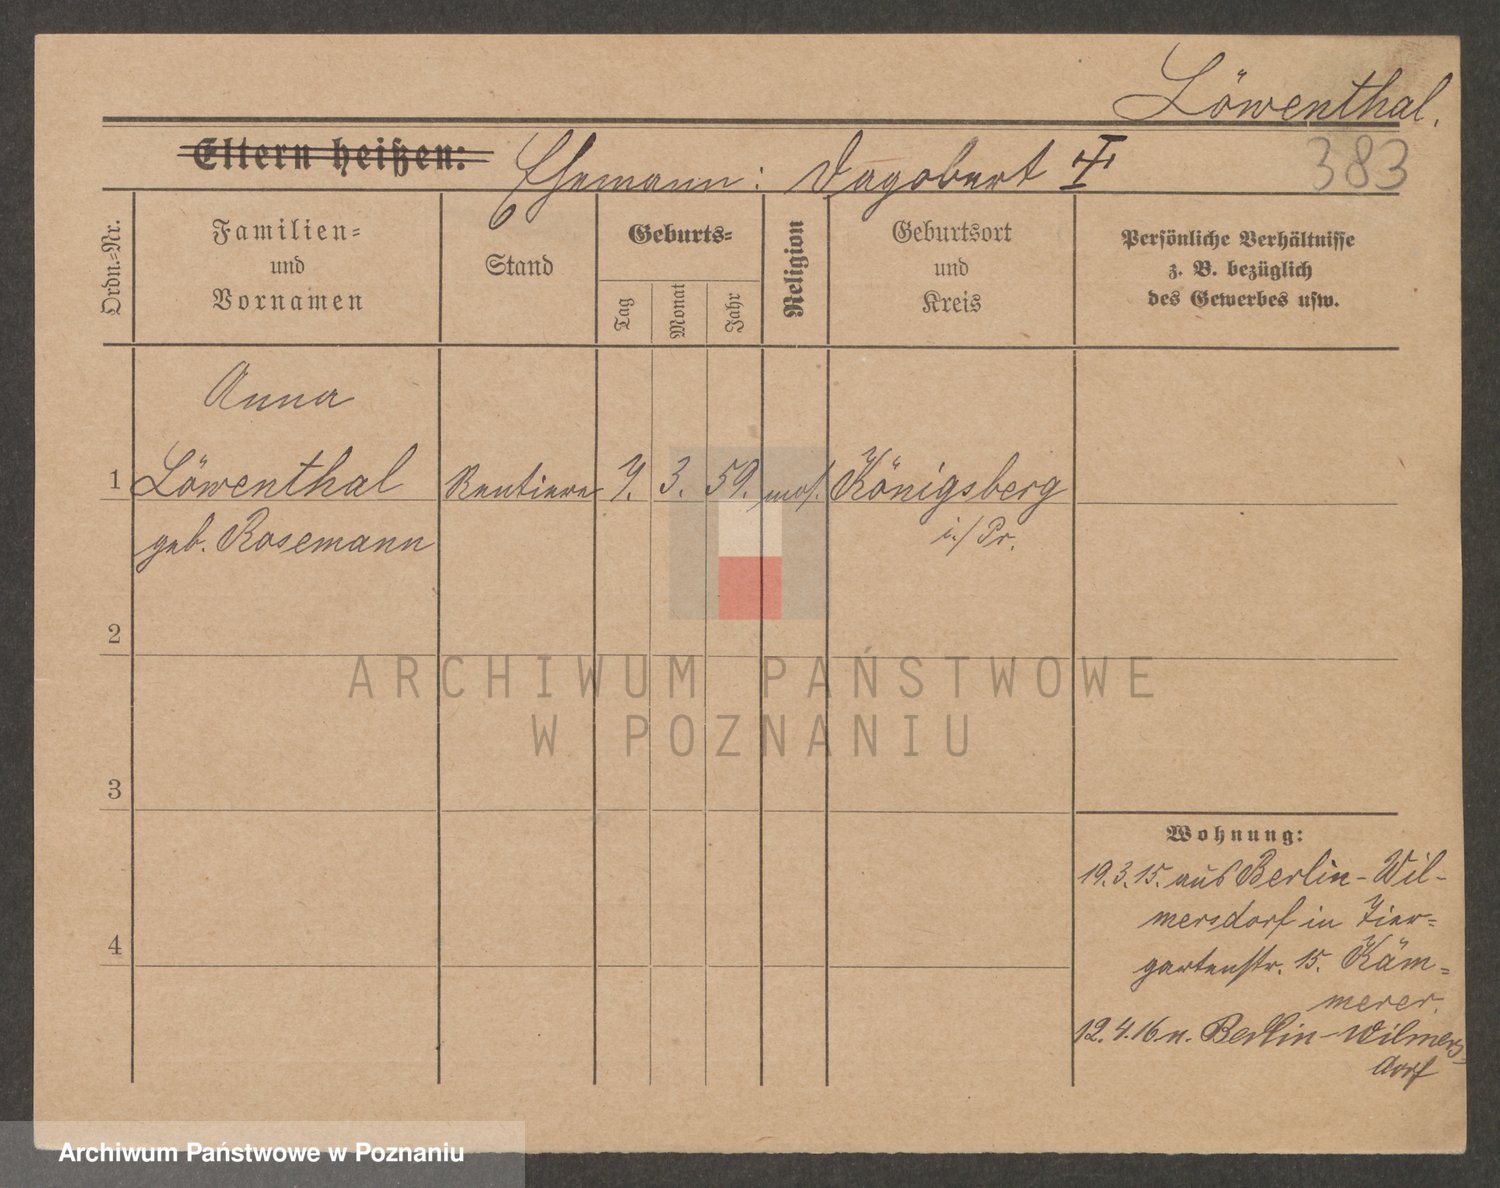 Löwenthal.
Eltern heißen: Ehemann: Dagobert
383
Ordn.-Nr.
Familien-
und
Vornamen
Stand
Geburts-
Tag
Monat
Jahr
Religion
Geburtsort
und
Kreis
Persönliche Verhältnisse
z. B. bezüglich
des Gewerbes usw.
Anna
1 Löwenthal Rentiere 7. 3. 59. mos. Königsberg
geb. Rosemann i./Pr.
2
3
4
Wohnung:
19.3.15. aus Berlin-Wil-
mersdorf in Tier-
gartenstr. 15. Käm-
merer.
12.4.16 n. Berlin-Wilmers-
dorf
ARCHIWUM PAŃSTWOWE
W POZNANIU
Archiwum Państwowe w Poznaniu